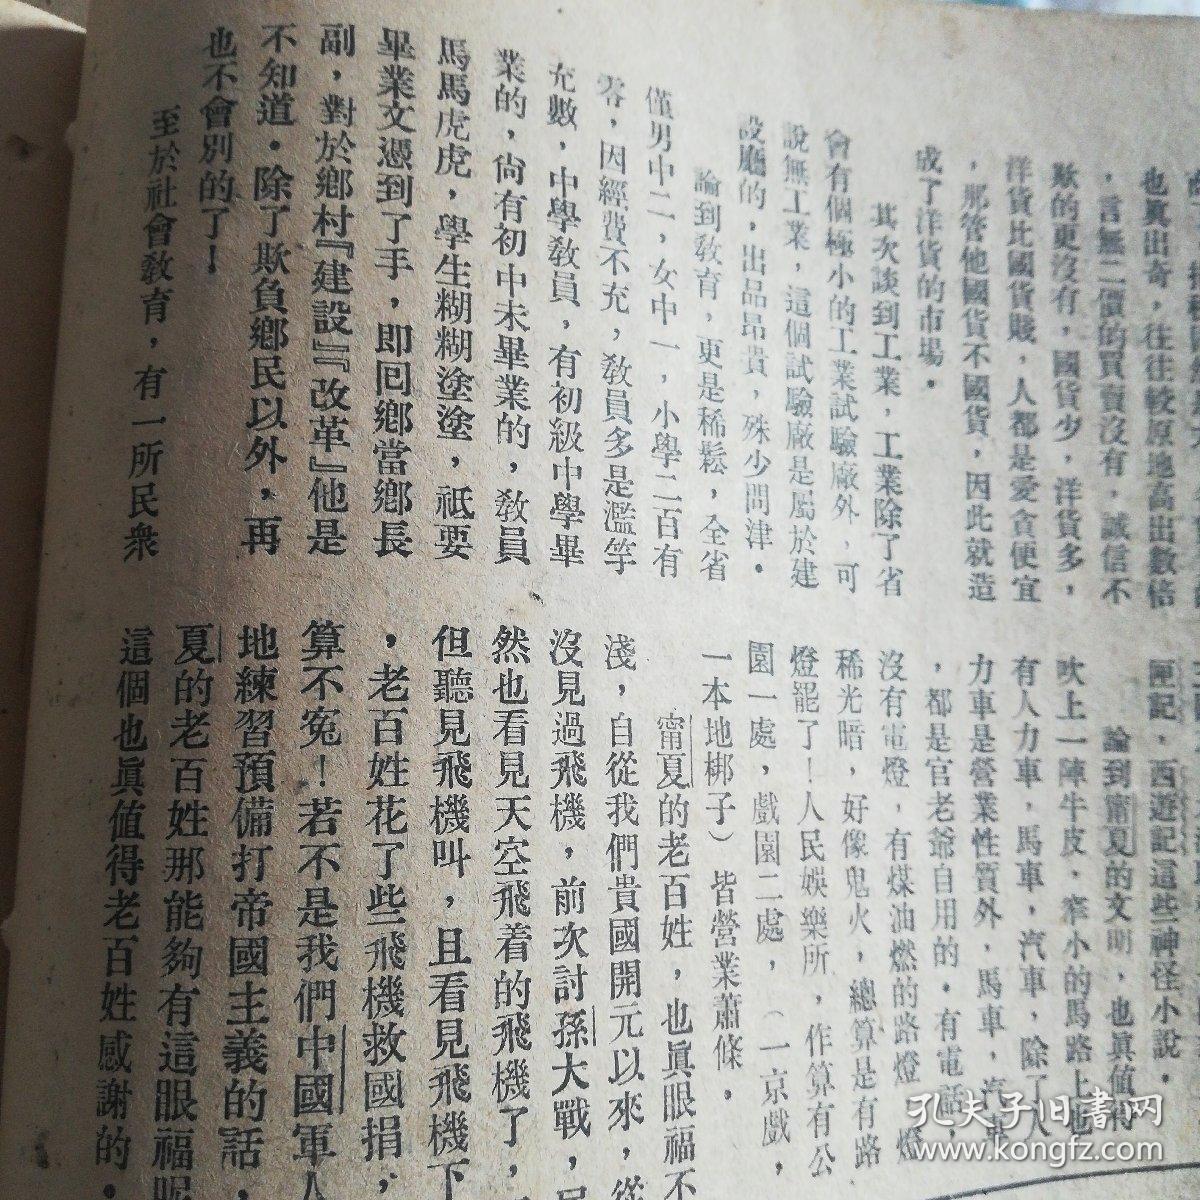 也眞出奇，往往較原地高出數倍
，言無二價的買賣沒有，誠信不
欺的更沒有，國貨少，洋貨多，
洋貨比國貨賤，人都是愛貪便宜
，那管他國貨不國貨，因此就造
成了洋貨的市場。
其次談到工業，工業除了省
會有個極小的工業試驗廠外，可
說無工業，這個試驗廠是屬於建
設廳的，出品昂貴，殊少問津。
論到敎育，更是稀鬆，全省
僅男中二，女中一，小學二百有
零，因經費不充，敎員多是濫竽
充數，中學敎員，有初級中學畢
業的，尙有初中未畢業的，敎員
馬馬虎虎，學生糊糊塗塗，祇要
畢業文憑到了手，即回鄉當鄉長
副，對於鄉村『建設』『改革』他是
不知道。除了欺負鄉民以外，再
也不會別的了！
至於社會敎育，有一所民衆
匣記，西遊記這些神怪小說。
論到甯夏的文明，也眞値得
吹上一陣牛皮，窄小的馬路上也
有人力車，馬車，汽車，除了人
力車是營業性質外，馬車，汽車
，都是官老爺自用的。有電話
沒有電燈，有煤油燃的路燈，燈
稀光暗，好像鬼火，總算是有路
燈罷了！人民娛樂所，作算有公
園一處，戲園二處，（一京戲，
一本地梆子）皆營業蕭條。
甯夏的老百姓，也眞眼福不
淺，自從我們貴國開元以來，從
沒見過飛機，前次討孫大戰，居
然也看見天空飛着的飛機了，
但聽見飛機叫，且看見飛機下
，老百姓花了些飛機救國捐，
算不寃！若不是我們中國軍人
地練習預備打帝國主義的話，
夏的老百姓那能夠有這眼福呢
這個也眞値得老百姓感謝的。
孔夫子旧書网
www.kongfz.com